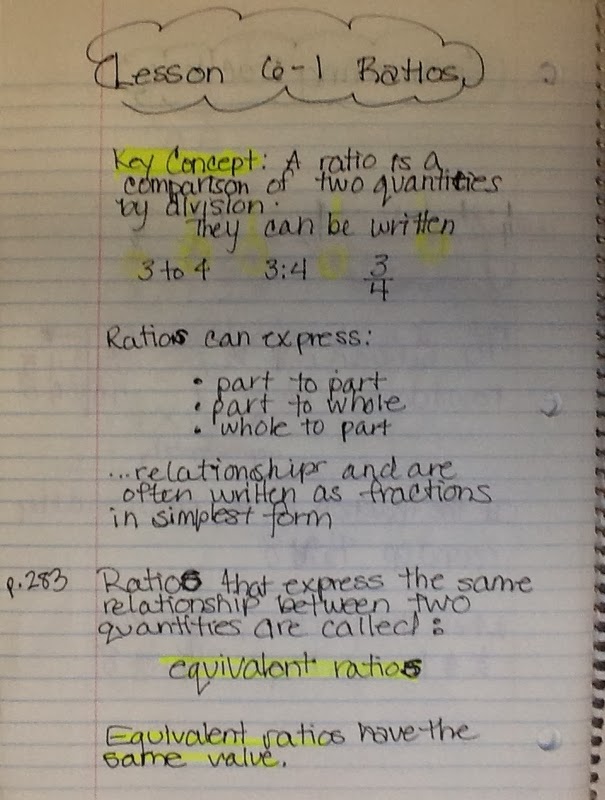 Lesson 6-1 Ratios
Key Concept: A ratio is a
comparison of two quantities
by division.
They can be written
3 to 4 3:4 3/4
Ratios can express:
• part to part
• part to whole
• whole to part
...relationships and are
often written as fractions
in simplest form
p.283 Ratios that express the same
relationship between two
quantities are called:
equivalent ratios
Equivalent ratios have the
same value.